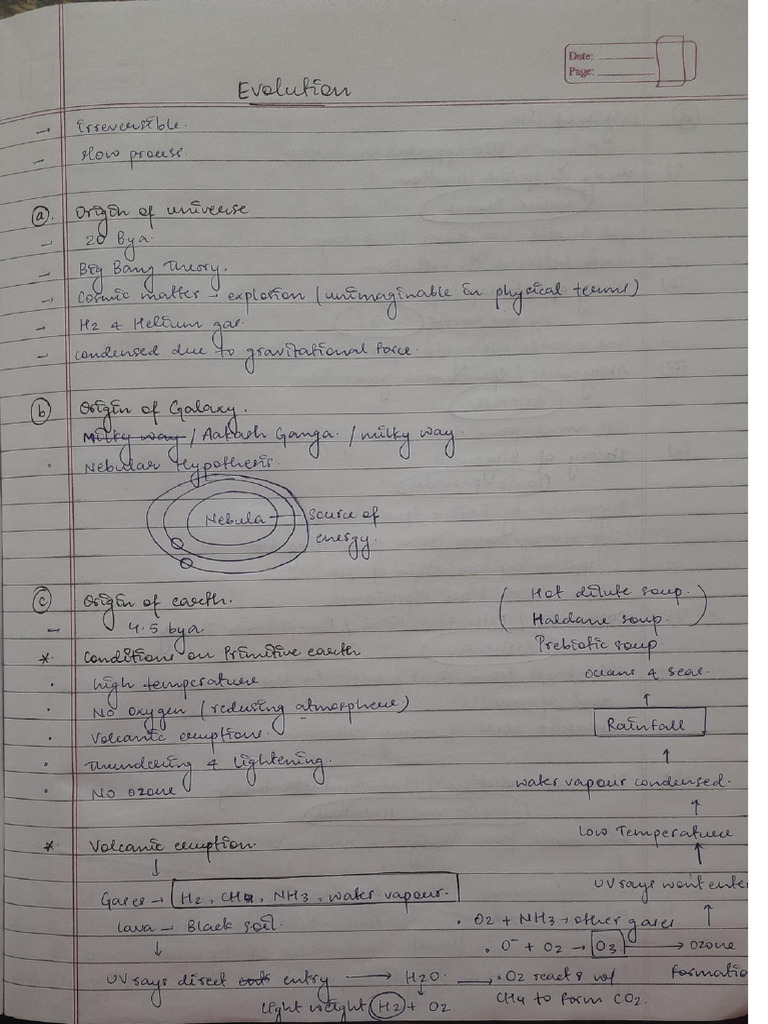 Date:
Page:
Evolution
→ irreversible.
- slow process.
(a). Origin of universe
- 20 Bya.
- Big Bang Theory.
→ Cosmic matter → explosion (unimaginable in physical terms)
- H2 & Helium gas.
- condensed due to gravitational force.
(b) Origin of Galaxy.
Milky way / Aakash Ganga. / milky way.
• Nebular Hypothesis.
Nebula — source of
energy.
(c) Origin of earth.
- 4.5 bya.
* Conditions on Primitive earth
• high temperature
• No oxygen (reducing atmosphere)
• Volcanic eruptions.
• Thundering & lightening.
• No ozone
(Hot dilute soup.
Haldane soup.)
Prebiotic soup.
oceans & seas.
↑
Rainfall
↑
water vapour condensed.
↑
Low Temperature
↑
UV rays won't enter
↑
* Volcanic eruption.
↓
Gases → H2, CH4, NH3, water vapour.
Lava → Black soil.
↓
UV rays direct entry → H2O. → • O2 reacts w/
CH4 to form CO2.
↓
light weight (H2) + O2
• O2 + NH3 → other gases
• O- + O2 → O3 → Ozone
formatio